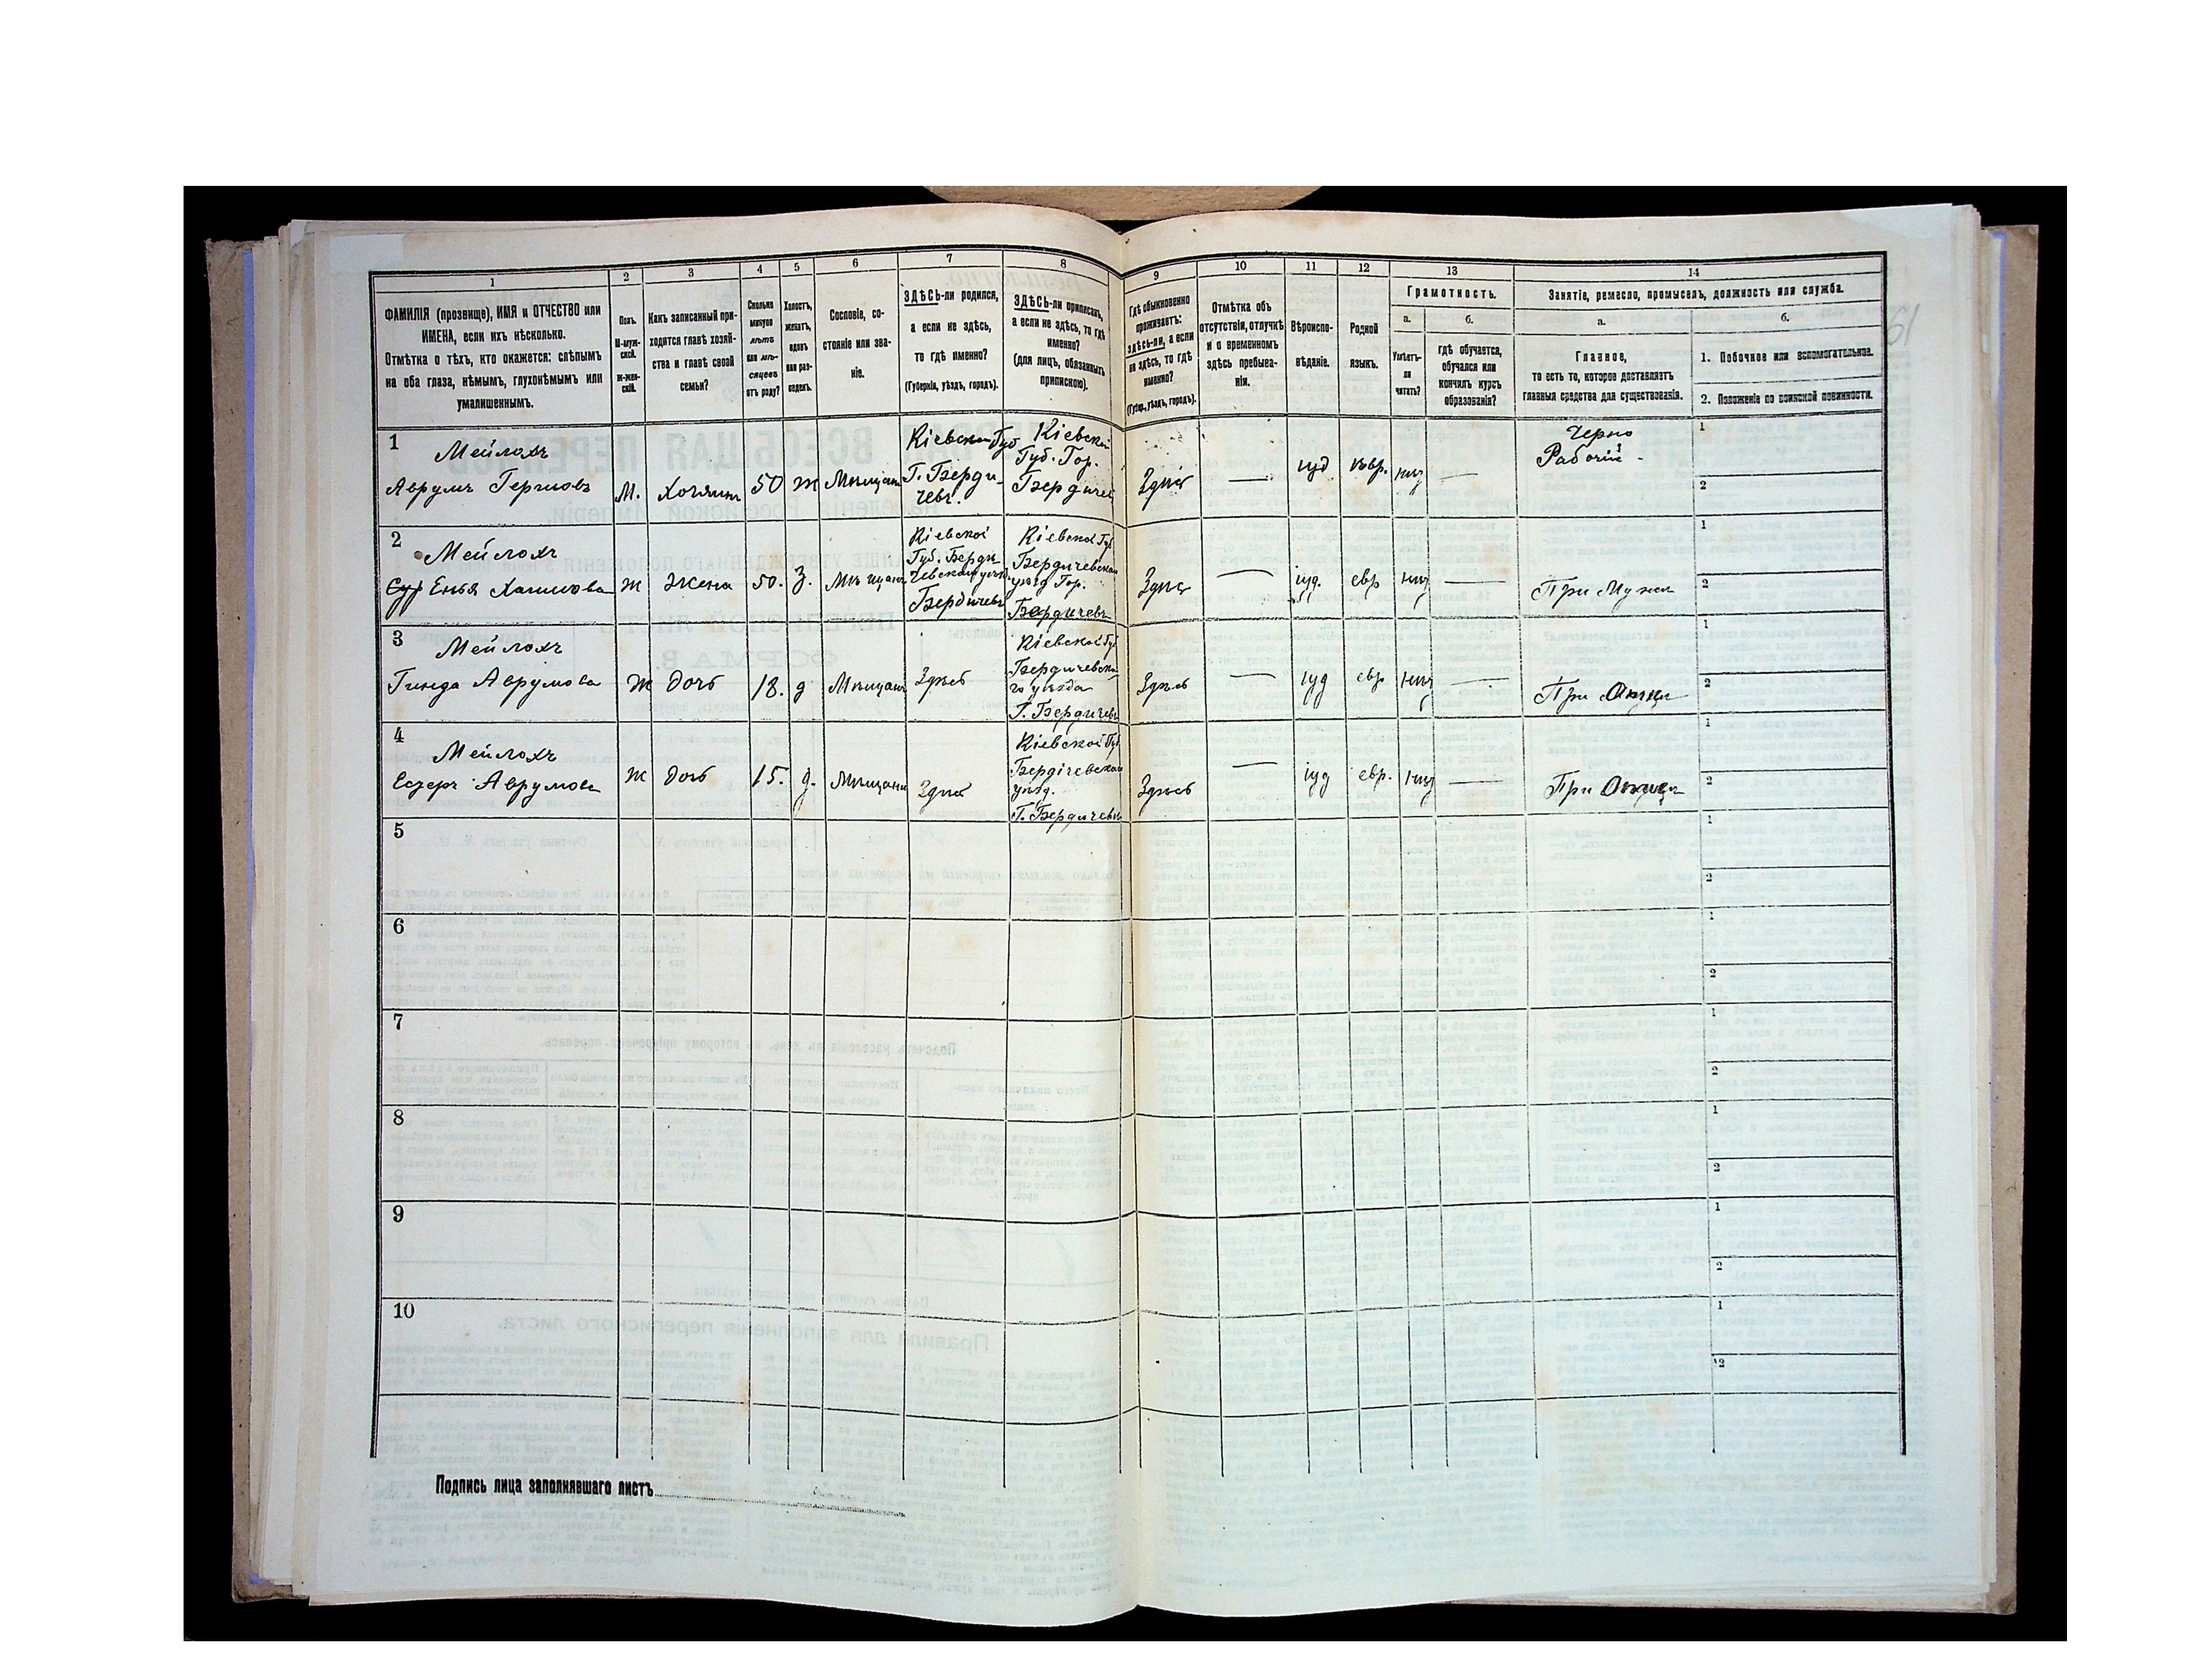 1
2
3
4
5
6
7
8
9
10
11
12
13
14
ФАМИЛІЯ (прозвище), ИМЯ и ОТЧЕСТВО или
ИМЕНА, если ихъ нѣсколько.
Отмѣтка о тѣхъ, кто окажется: слѣпымъ
на оба глаза, нѣмымъ, глухонѣмымъ или
умалишеннымъ.
Полъ.
М-муж-
ской.
Ж-жен-
скій.
Какъ записанный при-
ходится главѣ хозяй-
ства и главѣ своей
семьи?
Сколько
минуло
лѣтъ
или мѣ-
сяцевъ
отъ роду?
Холостъ,
женатъ,
вдовъ
или раз-
веденъ.
Сословіе, со-
стояніе или зва-
ніе.
ЗДѢСЬ-ли родился,
а если не здѣсь,
то гдѣ именно?
(Губернія, уѣздъ, городъ).
ЗДѢСЬ-ли приписанъ,
а если не здѣсь, то гдѣ
именно?
(для лицъ, обязанныхъ
припискою).
Гдѣ обыкновенно
проживаетъ:
здѣсь-ли, а если
не здѣсь, то гдѣ
именно?
(Губер., уѣздъ, городъ).
Отмѣтка объ
отсутствіи, отлучкѣ
и о временномъ
здѣсь пребыва-
ніи.
Вѣроиспо-
вѣданіе.
Родной
языкъ.
Грамотность.
а.
б.
Умѣетъ-
ли
читать?
гдѣ обучается,
обучался или
кончилъ курсъ
образованія?
Занятіе, ремесло, промыселъ, должность или служба.
а.
б.
Главное,
то есть то, которое доставляетъ
главныя средства для существованія.
1. Побочное или вспомогательное.
2. Положеніе по воинской повинности.
1
Мейлохъ
Аврумъ Гершовъ
М.
Хозяинъ
50
Ж
Мѣщанинъ
Кіевская Губ
Г. Берди-
чевъ.
Кіевской
Губ. Гор.
Бердичев
Здѣсь
—
іуд
евр.
нѣт
—
Черно
Рабочій
1
2
2
Мейлохъ
Енья Хаимова
Ж
Жена
50.
З.
Мѣщанка
Кіевской
Губ. Берди
чевского уѣзд.
Бердичевъ
Кіевской Губ
Бердичевского
уѣзд Гор.
Бердичевъ
Здѣсь
—
іуд.
евр
нѣт
—
При Мужѣ
1
2
3
Мейлохъ
Гинда Аврумова
Ж
дочь
18.
д
Мѣщанк
Здѣсь
Кіевской Губ
Бердичевска
го уѣзда
Г. Бердичевъ
Здѣсь
—
іуд
евр
нѣт
—
При Отцѣ
1
2
4
Мейлохъ
Аврумова
Ж
дочь
15.
д.
Мѣщанк
Здѣсь
Кіевской Губ
Бердічевского
уѣзд.
Г. Бердичевъ
Здѣсь
—
іуд
евр.
нѣт
—
При Отцѣ
1
2
5
1
2
6
1
2
7
1
2
8
1
2
9
1
2
10
1
2
Подпись лица заполнявшаго листъ